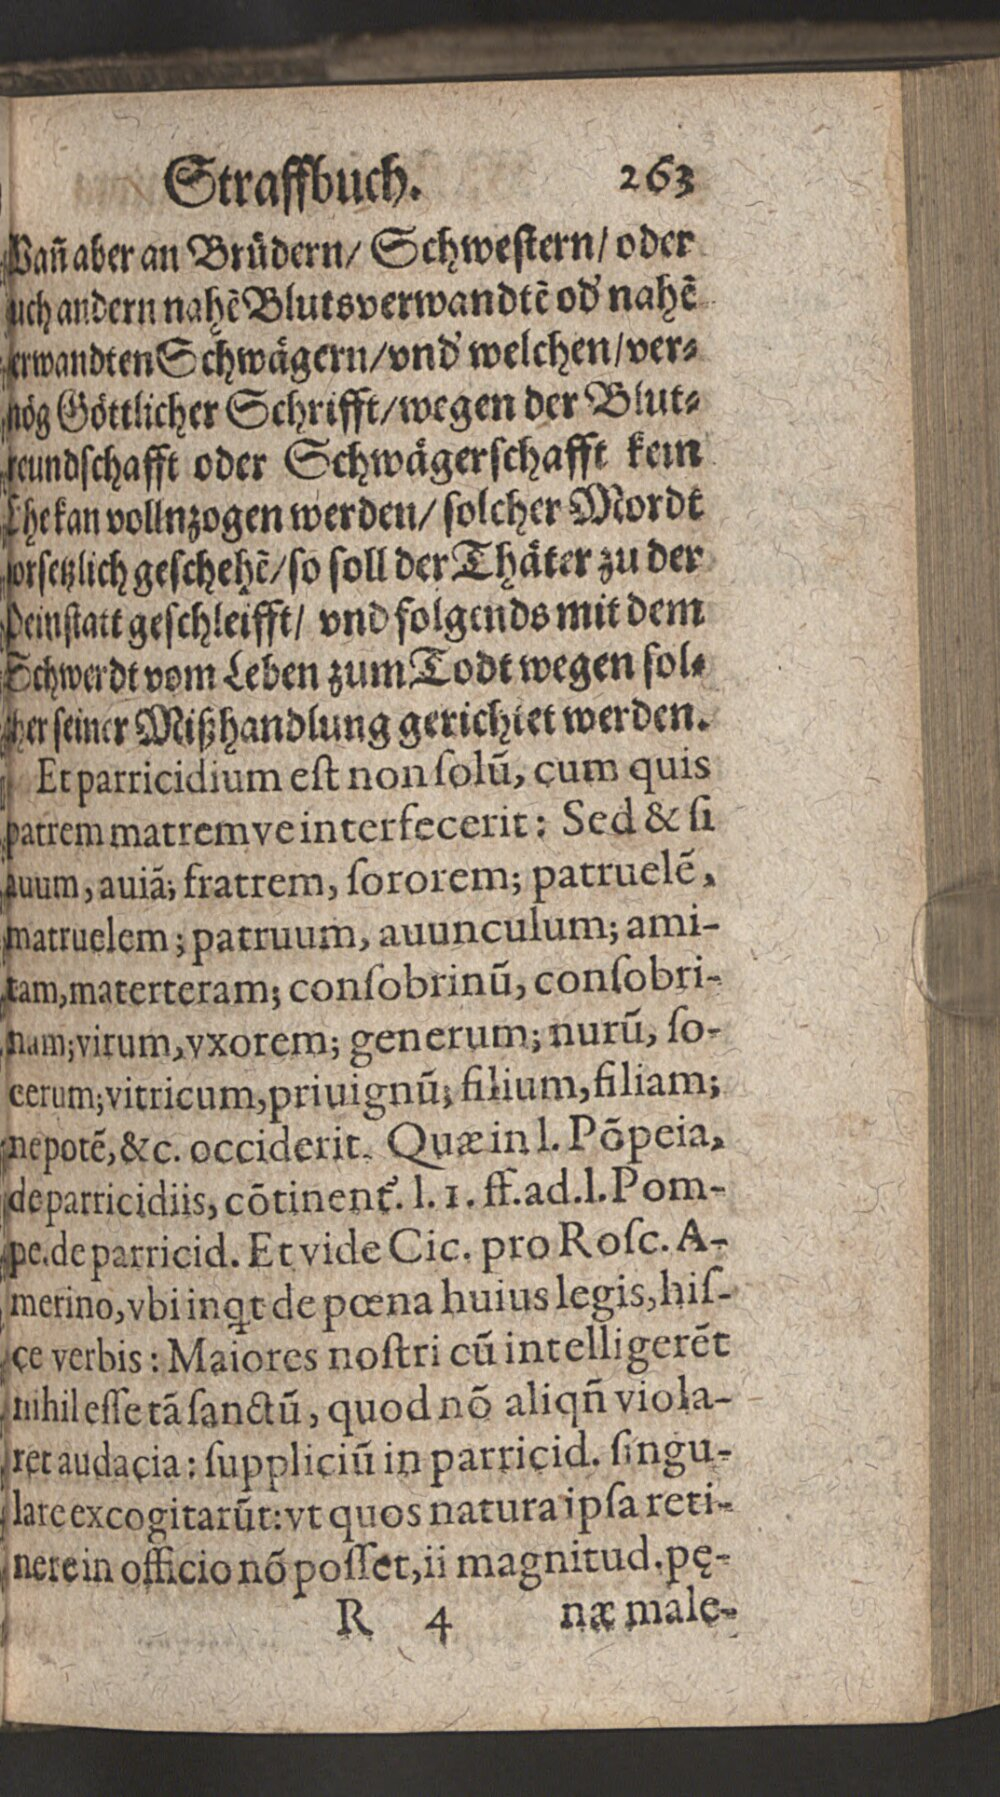 Straffbuch. 263
Wañ aber an Brüdern/ Schwestern/ oder
auch andern nahẽ Blutsverwandtẽ od' nahẽ
verwandten Schwägern/ vnd' welchen/ ver-
mög Göttlicher Schrifft/ wegen der Blut-
freundschafft oder Schwägerschafft kein
Ehe kan vollnzogen werden/ solcher Mordt
vorsetzlich geschehẽ/ so soll der Thäter zu der
Peinstatt geschleifft/ vnd folgends mit dem
Schwerdt vom Leben zum Todt wegen sol-
cher seiner Mißhandlung gerichtet werden.
Et parricidium est non solũ, cum quis
patrem matremve interfecerit: Sed & si
auum, auiã; fratrem, sororem; patruelẽ,
matruelem; patruum, auunculum; ami-
tam, materteram; consobrinũ, consobri-
nam; virum, vxorem; generum; nurũ, so-
cerum; vitricum, priuignũ; filium, filiam;
nepotẽ, &c. occiderit. Quæ in l. Põpeia,
de parricidiis, cõtinent'. l. 1. ff. ad. l. Pom-
pe. de parricid. Et vide Cic. pro Rosc. A-
merino, vbi inqt de pœna huius legis, his-
ce verbis: Maiores nostri cũ intelligerẽt
nihil esse tã sanctũ, quod nõ aliqñ viola-
ret audacia: suppliciũ in parricid. singu-
lare excogitarũt: vt quos natura ipsa reti-
nere in officio nõ posset, ii magnitud. pę-
R 4 næ male-